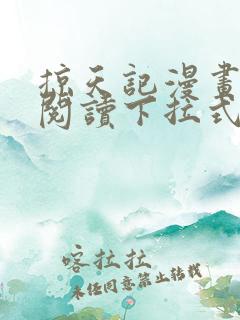 掠天記漫畫
閱讀下拉式
喀拉拉
未經同意禁止轉載